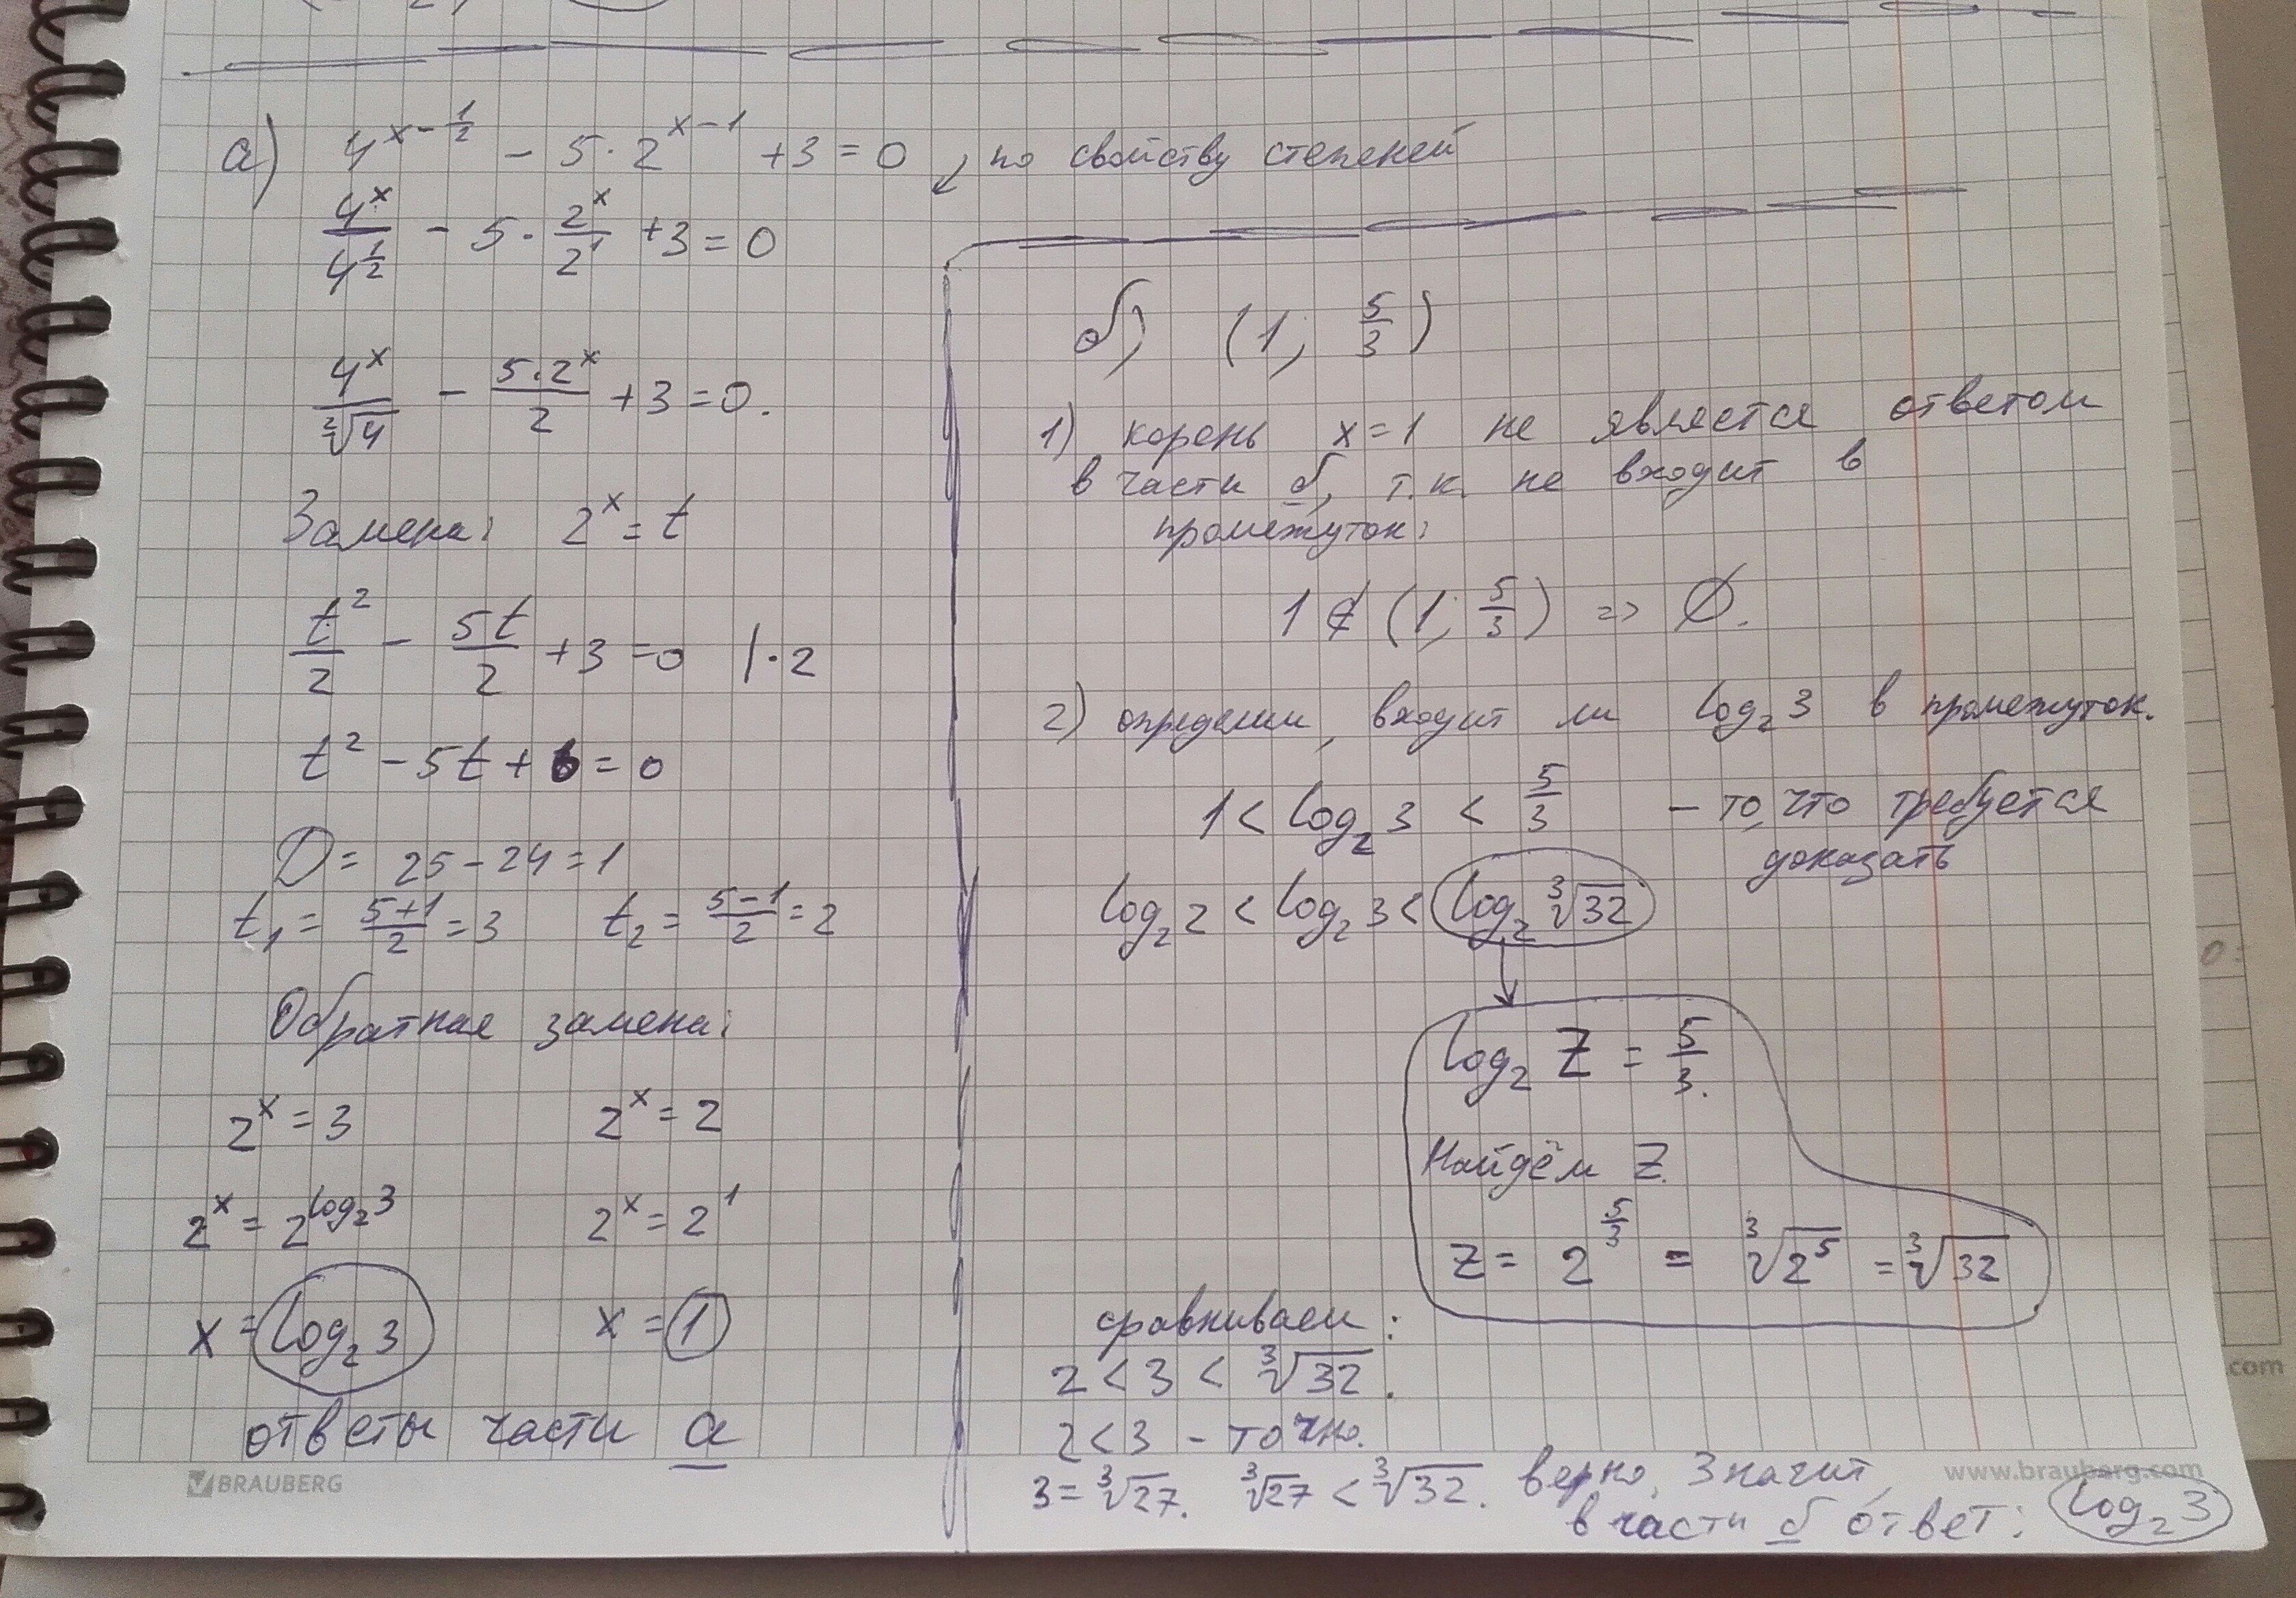 а) 4^{x-\frac{1}{2}} - 5·2^{x-1} +3=0 , по свойству степеней
\frac{4^x}{4^{\frac{1}{2}}} - 5·\frac{2^x}{2^1} +3=0
\frac{4^x}{\sqrt[2]{4}} - \frac{5·2^x}{2} +3=0.
Замена: 2^x = t
\frac{t^2}{2} - \frac{5t}{2} +3=0 |·2
t^2 -5t+6=0
D= 25-24=1
t_1 = \frac{5+1}{2} =3 t_2 = \frac{5-1}{2} =2
Обратная замена:
2^x =3 2^x =2
2^x = 2^{log_2 3} 2^x = 2^1
x= log_2 3 x= 1
ответы части а
BRAUBERG
б) (1; \frac{5}{3})
1) корень x=1 не является ответом
в части б, т.к. не входит в
промежуток:
1 ∉ (1; \frac{5}{3}) => Ø.
2) определим, входит ли log_2 3 в промежуток.
1 < log_2 3 < \frac{5}{3} - то, что требуется
доказать
log_2 2 < log_2 3 < log_2 \sqrt[3]{32}
log_2 Z = \frac{5}{3}.
Найдём Z.
Z = 2^{\frac{5}{3}} = \sqrt[3]{2^5} = \sqrt[3]{32}
сравниваем:
2 < 3 < \sqrt[3]{32}.
2<3 - точно.
3= \sqrt[3]{27}. \sqrt[3]{27} < \sqrt[3]{32}. верно. Значит,
www.brauberg.com
в части б ответ: log_2 3
.com